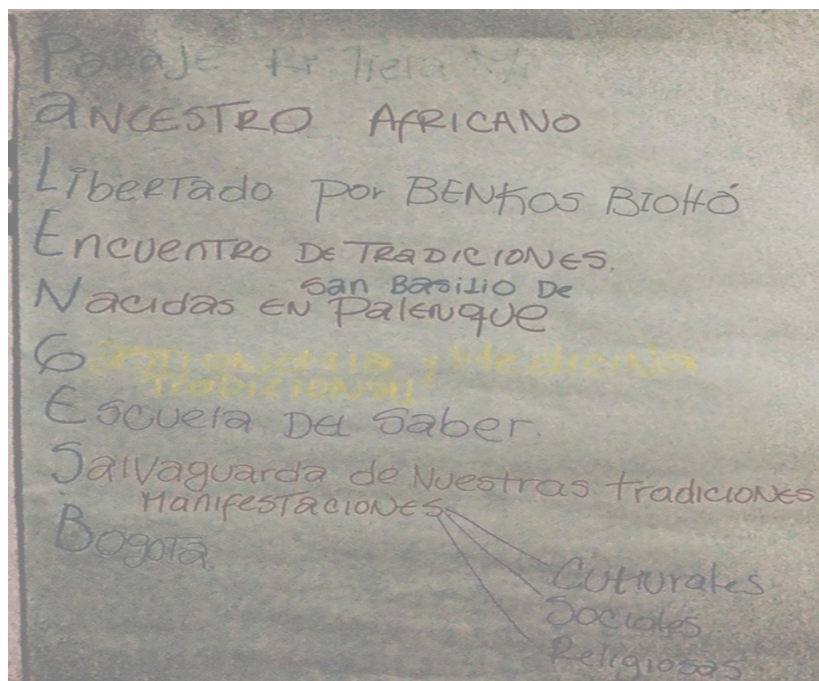 Paraje mi Tiera Mi
aNCESTRO AFRICANO
LibeRTado por BENKOS BIOHÓ
ENCUENTRO DE TRADICIONES.
San Basilio De
Nacidas EN Palenque
Gastronomia y Medicina
TRADICIONAL
Escuela Del Saber.
Salvaguarda de Nuestras tradiciones
MANIFESTACIONES
Bogotá
Culturales
Sociales
Religiosas